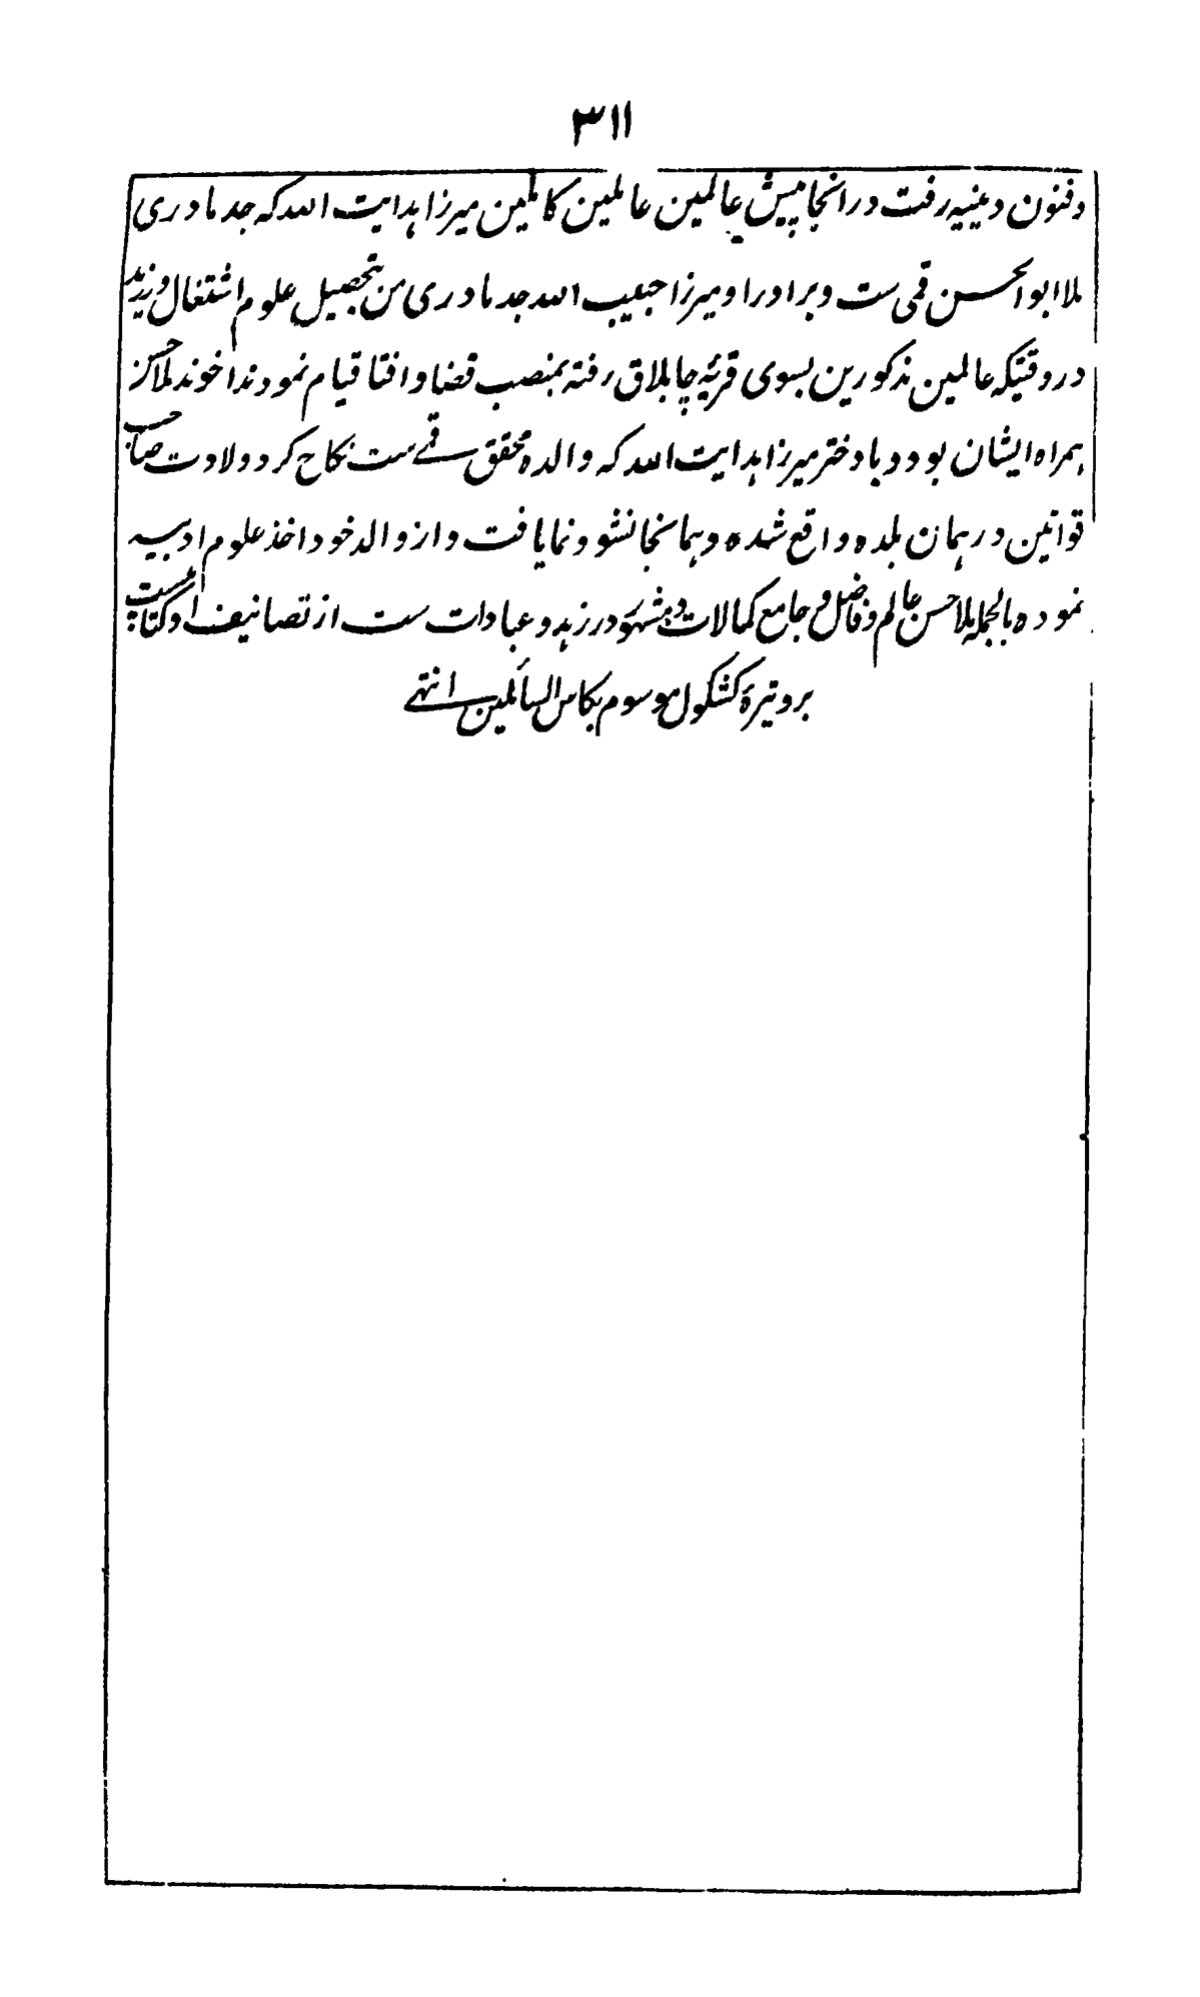 ۳۱۱
وفنون دینیه رفت در انجا پیش عالمین عاملین کاملین میرزا هدایت الله که جد مادری
ملا ابو الحسن قمی ست و برادر او میرزا حبیب الله جد مادری من بتحصیل علوم اشتغال ورزید
در وقتیکه عالمین مذکورین بسوی قریۀ چاپلاق رفته بمنصب قضا و افتا قیام نمودند اخوند ملا حسن
همراه ایشان بود و با دختر میرزا هدایت الله که والده محقق قمے ست نکاح کرد و ولادت صاحب
قوانین در همان بلده واقع شده و همانجا نشو و نما یافت و از والد خود اخذ علوم ادبیه
نموده بالجمله ملا حسن عالم و فاضل و جامع کمالات و مشهور در زهد و عبادات ست از تصانیف او کتابیست
بر وتیرۀ کشکول موسوم بکاس السائلین انتهے